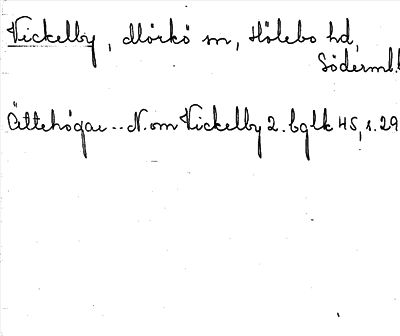 Vickelby, Mörkö sn, Hölebo hd,
Söderml.
Ättehögar .. N. om Vickelby 2. bglk 45, s. 29